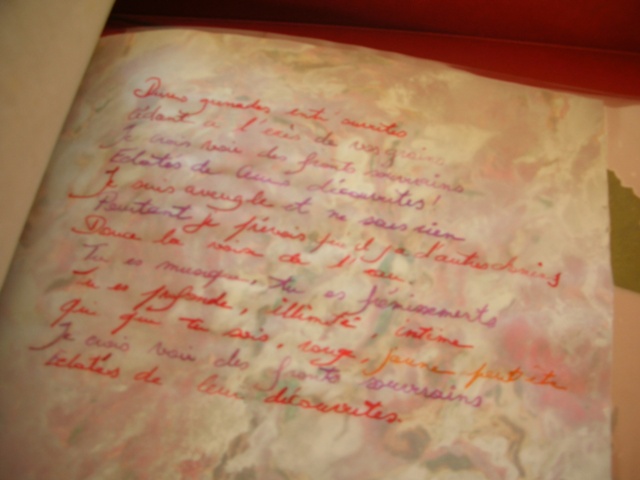 Dures grenades entr'ouvertes
Cédant à l'excès de vos grains
Je crois voir des fronts souverains
Éclatés de leurs découvertes!
Je suis aveugle et ne sais rien
Pourtant je prévois qu'il y a d'autres chemins
Douce la voix de l'
Tu es musique, tu es frémissements
Tu es profonde, illimité, intime
qui que tu sois, rouge, jaune peut être
Je crois voir des fronts souverains
Éclatés de leur découvertes.